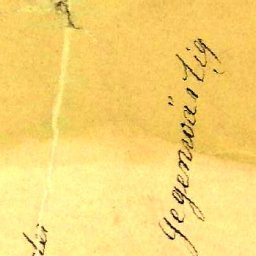 gegenwärtig